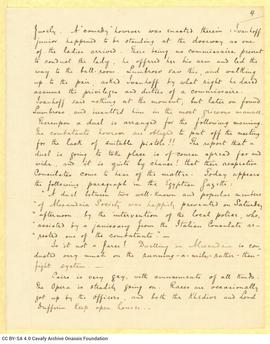 4
lively. A comedy however was enacted therein: Ivanhoff
junior happened to be standing at the doorway as one of
the ladies arrived. There being no commissaire present
to conduct the lady, he offered her his arm and led the
way to the ball-room. Lumbroso saw this, and walking
up to the pair asked Ivanhoff by what right he dared
assume the privileges and duties of a commissaire.
Ivanhoff said nothing at the moment, but later on found
Lumbroso and insulted him in the most grievous manner.
Hereupon a duel is arranged for the following morning.
The combatants however are obliged to put off the meeting
for the lack of suitable pistols!! The report that a
duel is going to take place is of course spread far and
wide, and it is quite by chance! that their respective
Consulates come to hear of the matter. Today appears
the following paragraph in the Egyptian Gazette:
"A duel between two well-known and popular members
"of Alexandria Society was happily prevented on Saturday
"afternoon by the intervention of the local police, who,
"assisted by a janissary from the Italian Consulate ar-
"rested one of the combatants."
Is it not a farce! Duelling in Alexandria is con-
ducted very much on the running-a-mile-rather-than-
fight system.
Cairo is very gay, with amusements of all kinds.
The Opera is steadily going on. Races are occasionally
got up by the officers, and both the Khedive and Lord
Dufferin keep open house.
CC BY-SA 4.0 Cavafy Archive Onassis Foundation